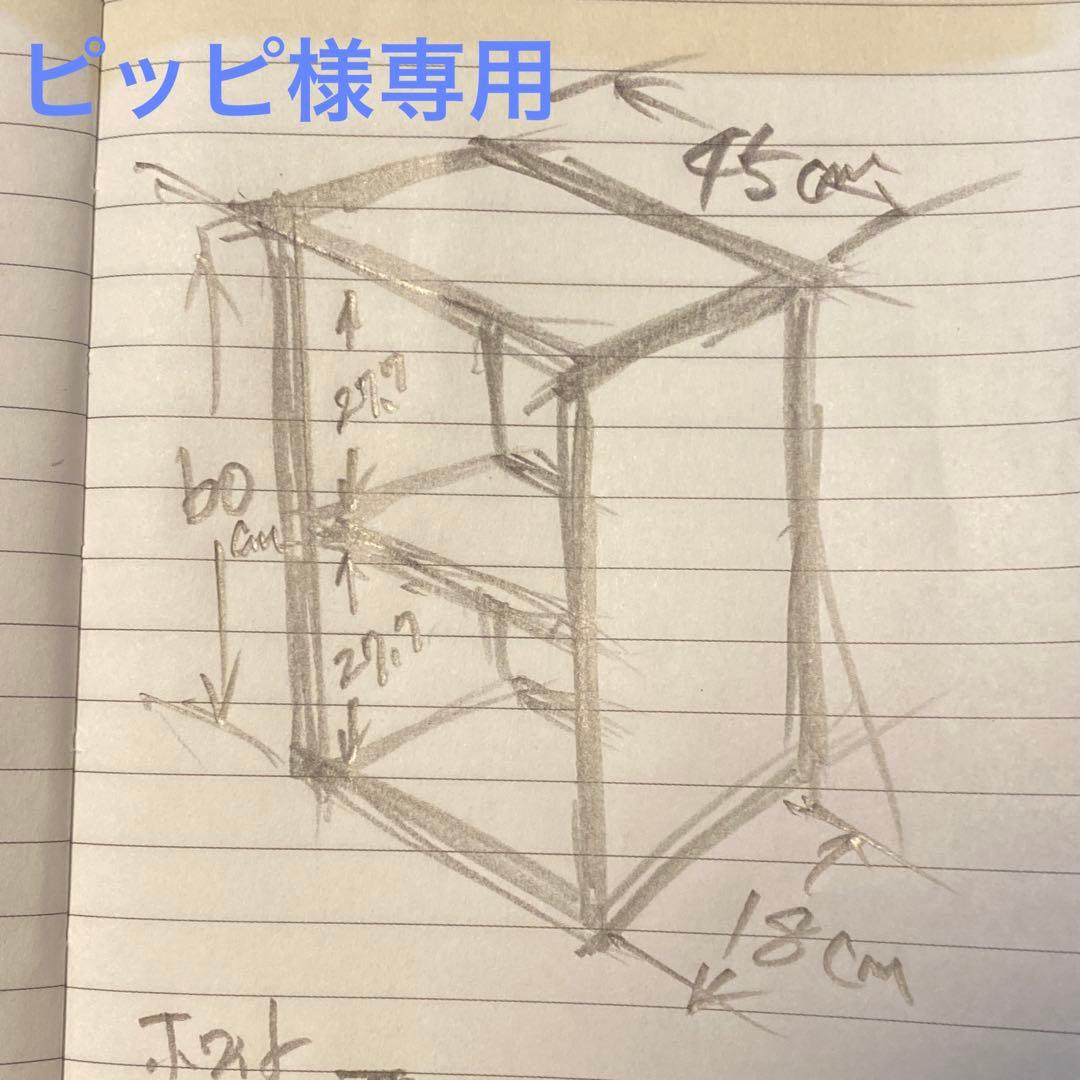 ピッピ様専用
45cm
27.7
60
cm
27.7
18cm
ホワイト